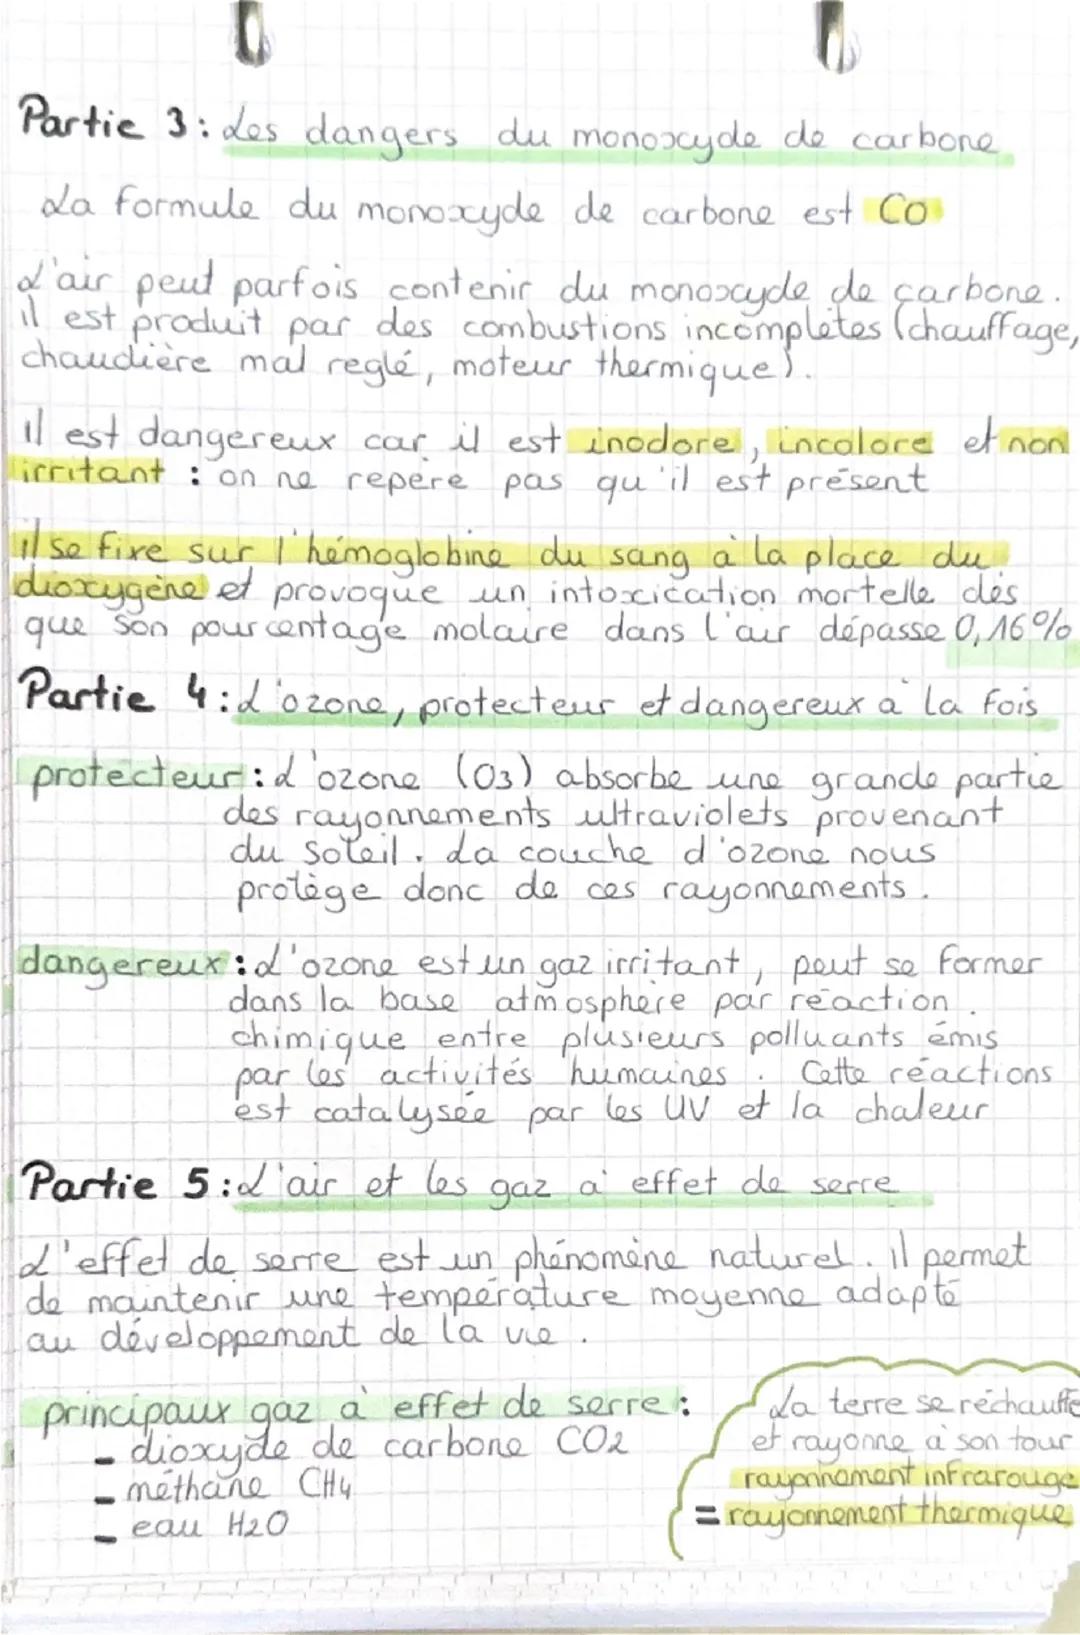 Partie 3 : Les dangers du monoxyde de carbone
La formule du monoxyde de carbone est CO
L'air peut parfois contenir du monoxyde de carbone.
il est produit par des combustions incomplètes (chauffage,
chaudière mal reglé, moteur thermique).
il est dangereux car il est inodore, incolore et non
irritant : on ne repère pas qu'il est présent
il se fixe sur l'hémoglobine du sang à la place du
dioxygène et provoque un intoxication mortelle dès
que son pourcentage molaire dans l'air dépasse 0,16%
Partie 4 : L'ozone, protecteur et dangereux à la fois
protecteur : L'ozone (O3) absorbe une grande partie
des rayonnements ultraviolets provenant
du soleil. La couche d'ozone nous
protège donc de ces rayonnements.
dangereux : L'ozone est un gaz irritant, peut se former
dans la base atmosphère par réaction
chimique entre plusieurs polluants émis
par les activités humaines. Cette réactions
est catalysée par les UV et la chaleur
Partie 5 : L'air et les gaz à effet de serre
L'effet de serre est un phénomène naturel. il permet
de maintenir une température moyenne adapté
au développement de la vie.
principaux gaz à effet de serre :
- dioxyde de carbone CO2
- méthane CH4
- eau H2O
La terre se réchauffe
et rayonne à son tour
rayonnement infrarouge
= rayonnement thermique